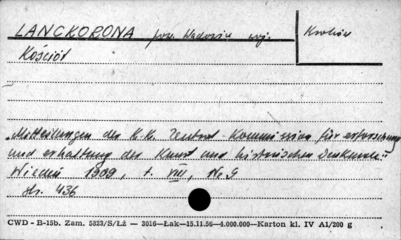 LANCKORONA pow. Wadowice woj.
Kraków
Kościół
"Mitteilungen der K.K. Zentral-Kommission für erforschung
und erhaltung der Kunst und historischen Denkmale"
Wiedeń 1909, t. VIII, Nr. 9
str. 436
CWD - B-15b. Zam. 5823/S/Łż — 3016—Łak—15.11.56—4.000.000—Karton kl. IV A1/200 g